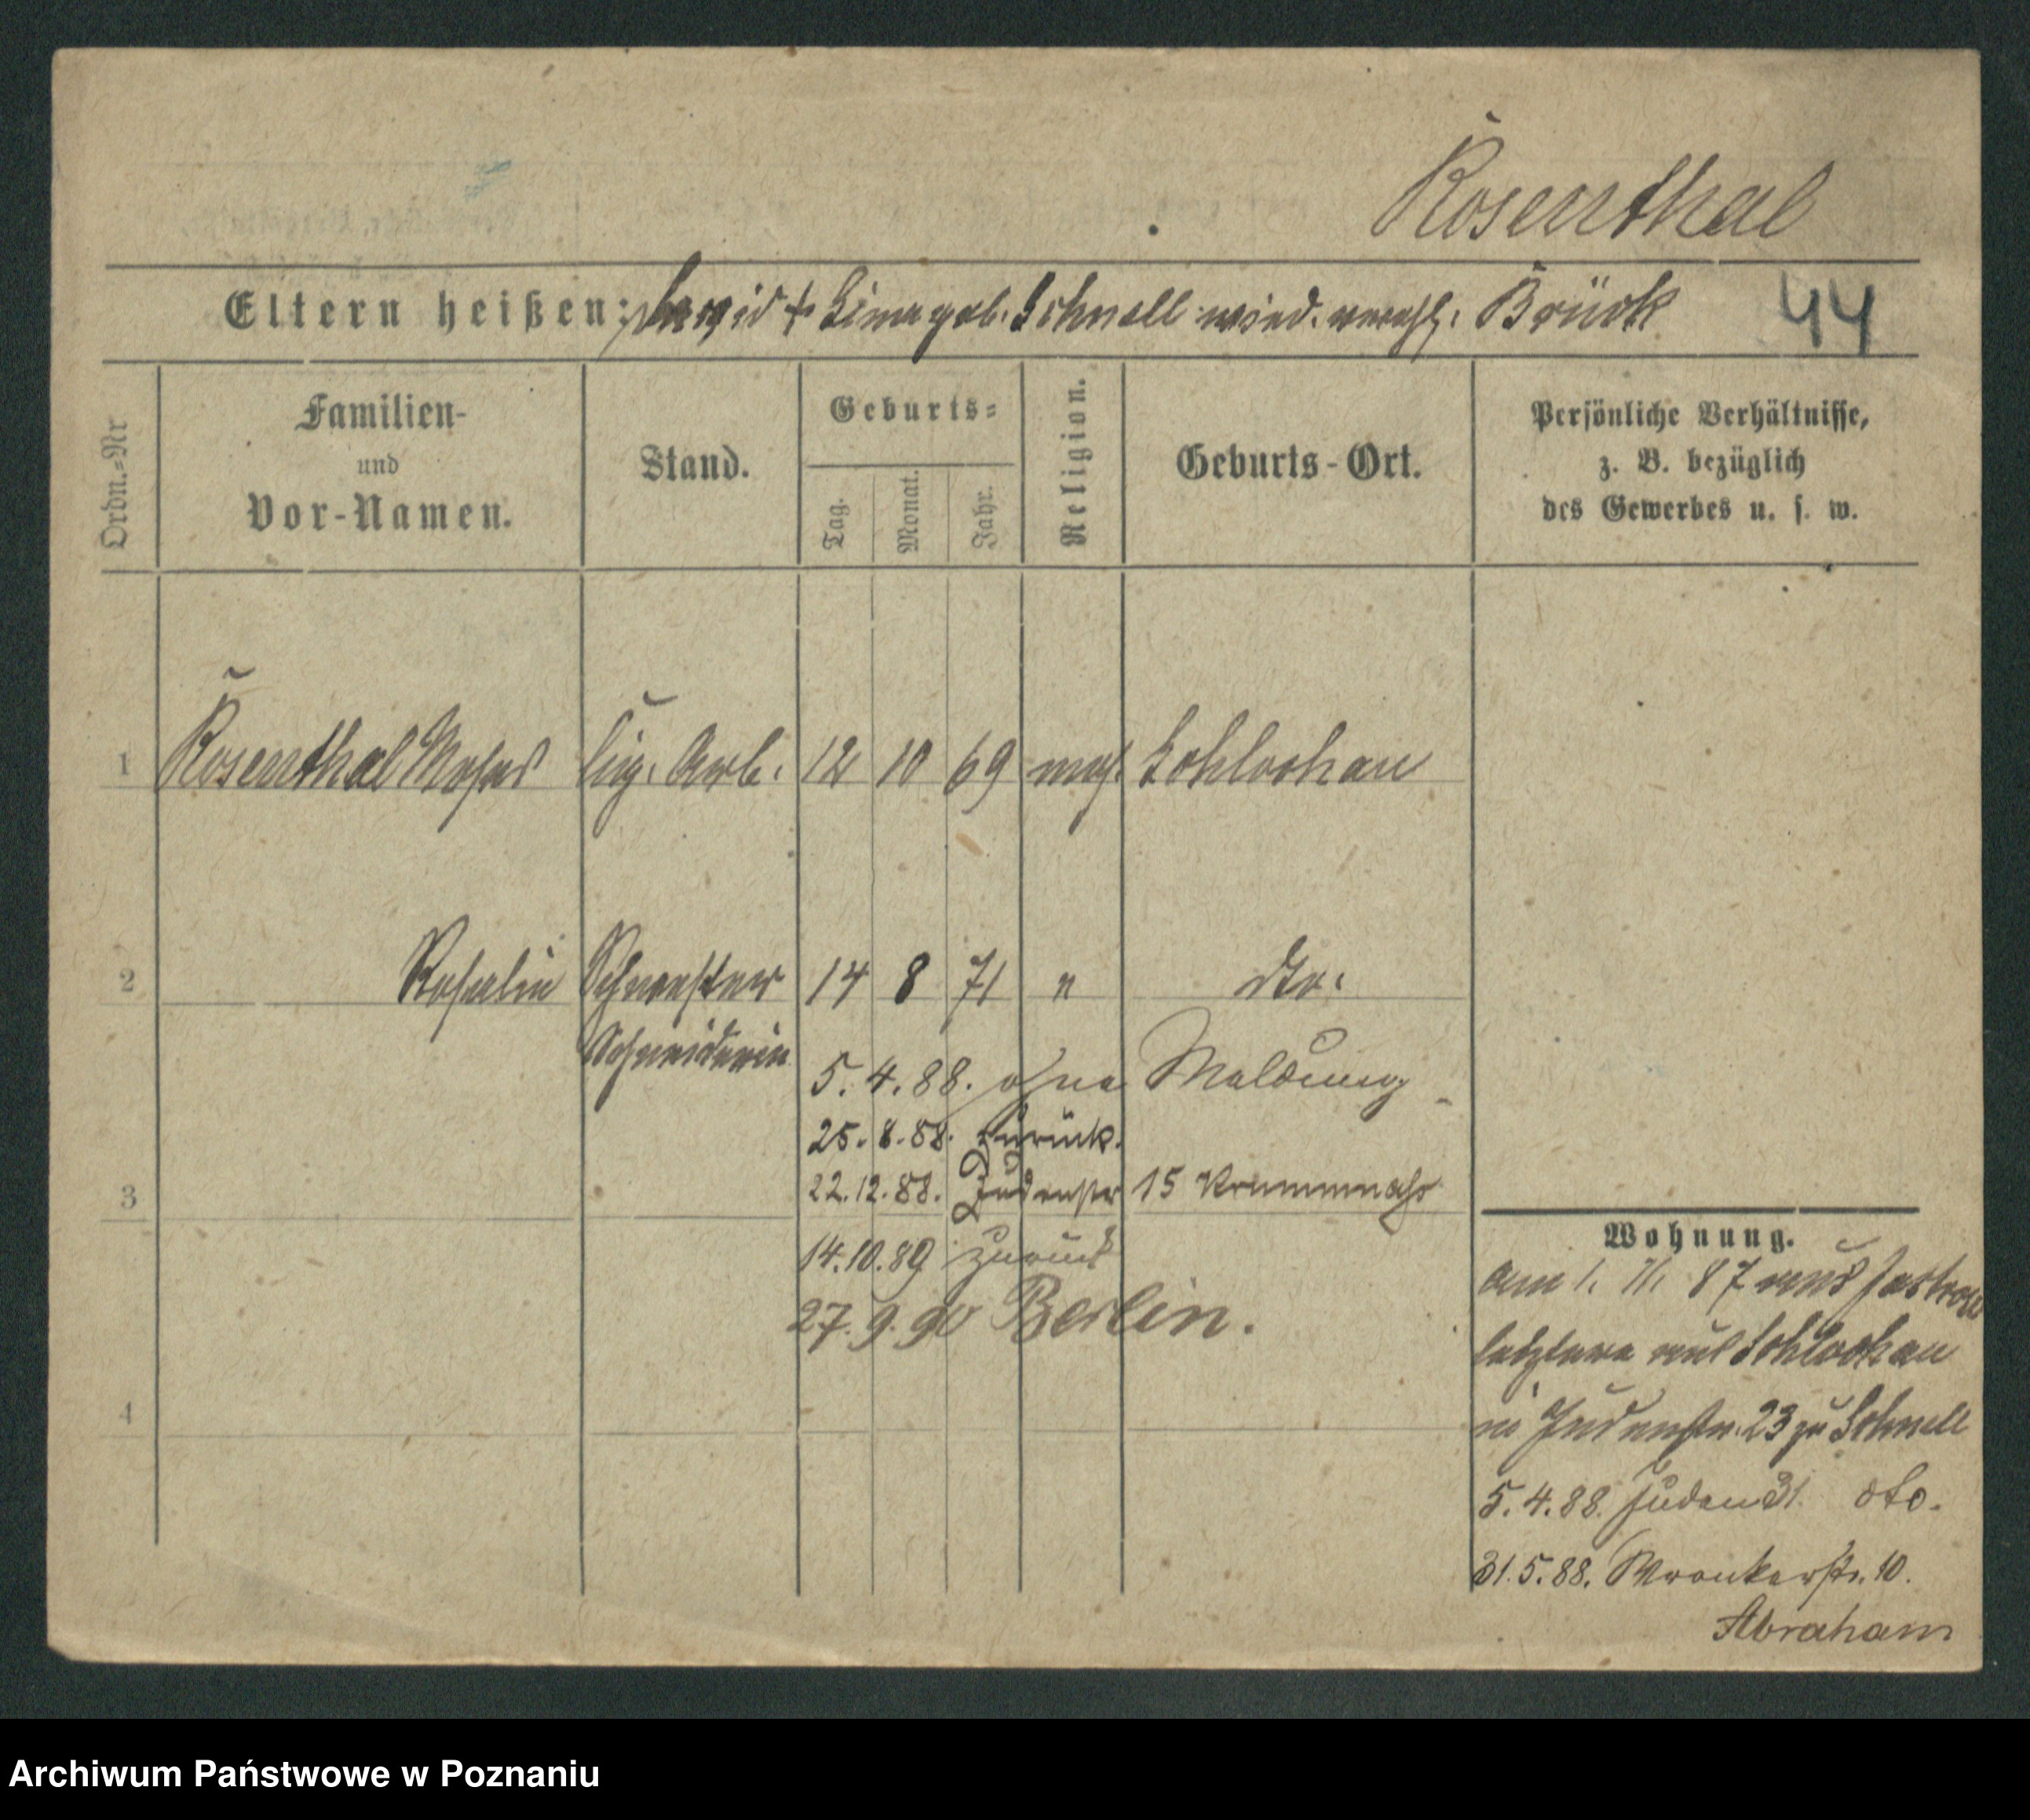 Rosenthal
Eltern heißen: David † Lina geb. Schnell wied. verehl. Brück 44
Ordn.-Nr
Familien-
und
Vor-Namen.
Stand.
Geburts-
Tag.
Monat.
Jahr.
Religion.
Geburts-Ort.
Persönliche Verhältnisse,
z. B. bezüglich
des Gewerbes u. s. w.
1 Rosenthal Moses Cig. Arb. 12 10 69 mos. Schlochau
2 Rosalie Schwester 14 8 71 " dto.
Schneiderin
5. 4. 88. ohne Meldung
25. 8. 88. zurück.
3 22. 12. 88. Judenstr 15 Krummnass
14. 10. 89 zurück
27. 9. 90 Berlin.
4
Wohnung.
am 1. 11. 87 aus Jastrow
letztere aus Schlochau
n Judenstr. 23 zu Schnell
5. 4. 88. Juden 31. dto.
31. 5. 88. Wronkerstr. 10.
Abraham
Archiwum Państwowe w Poznaniu